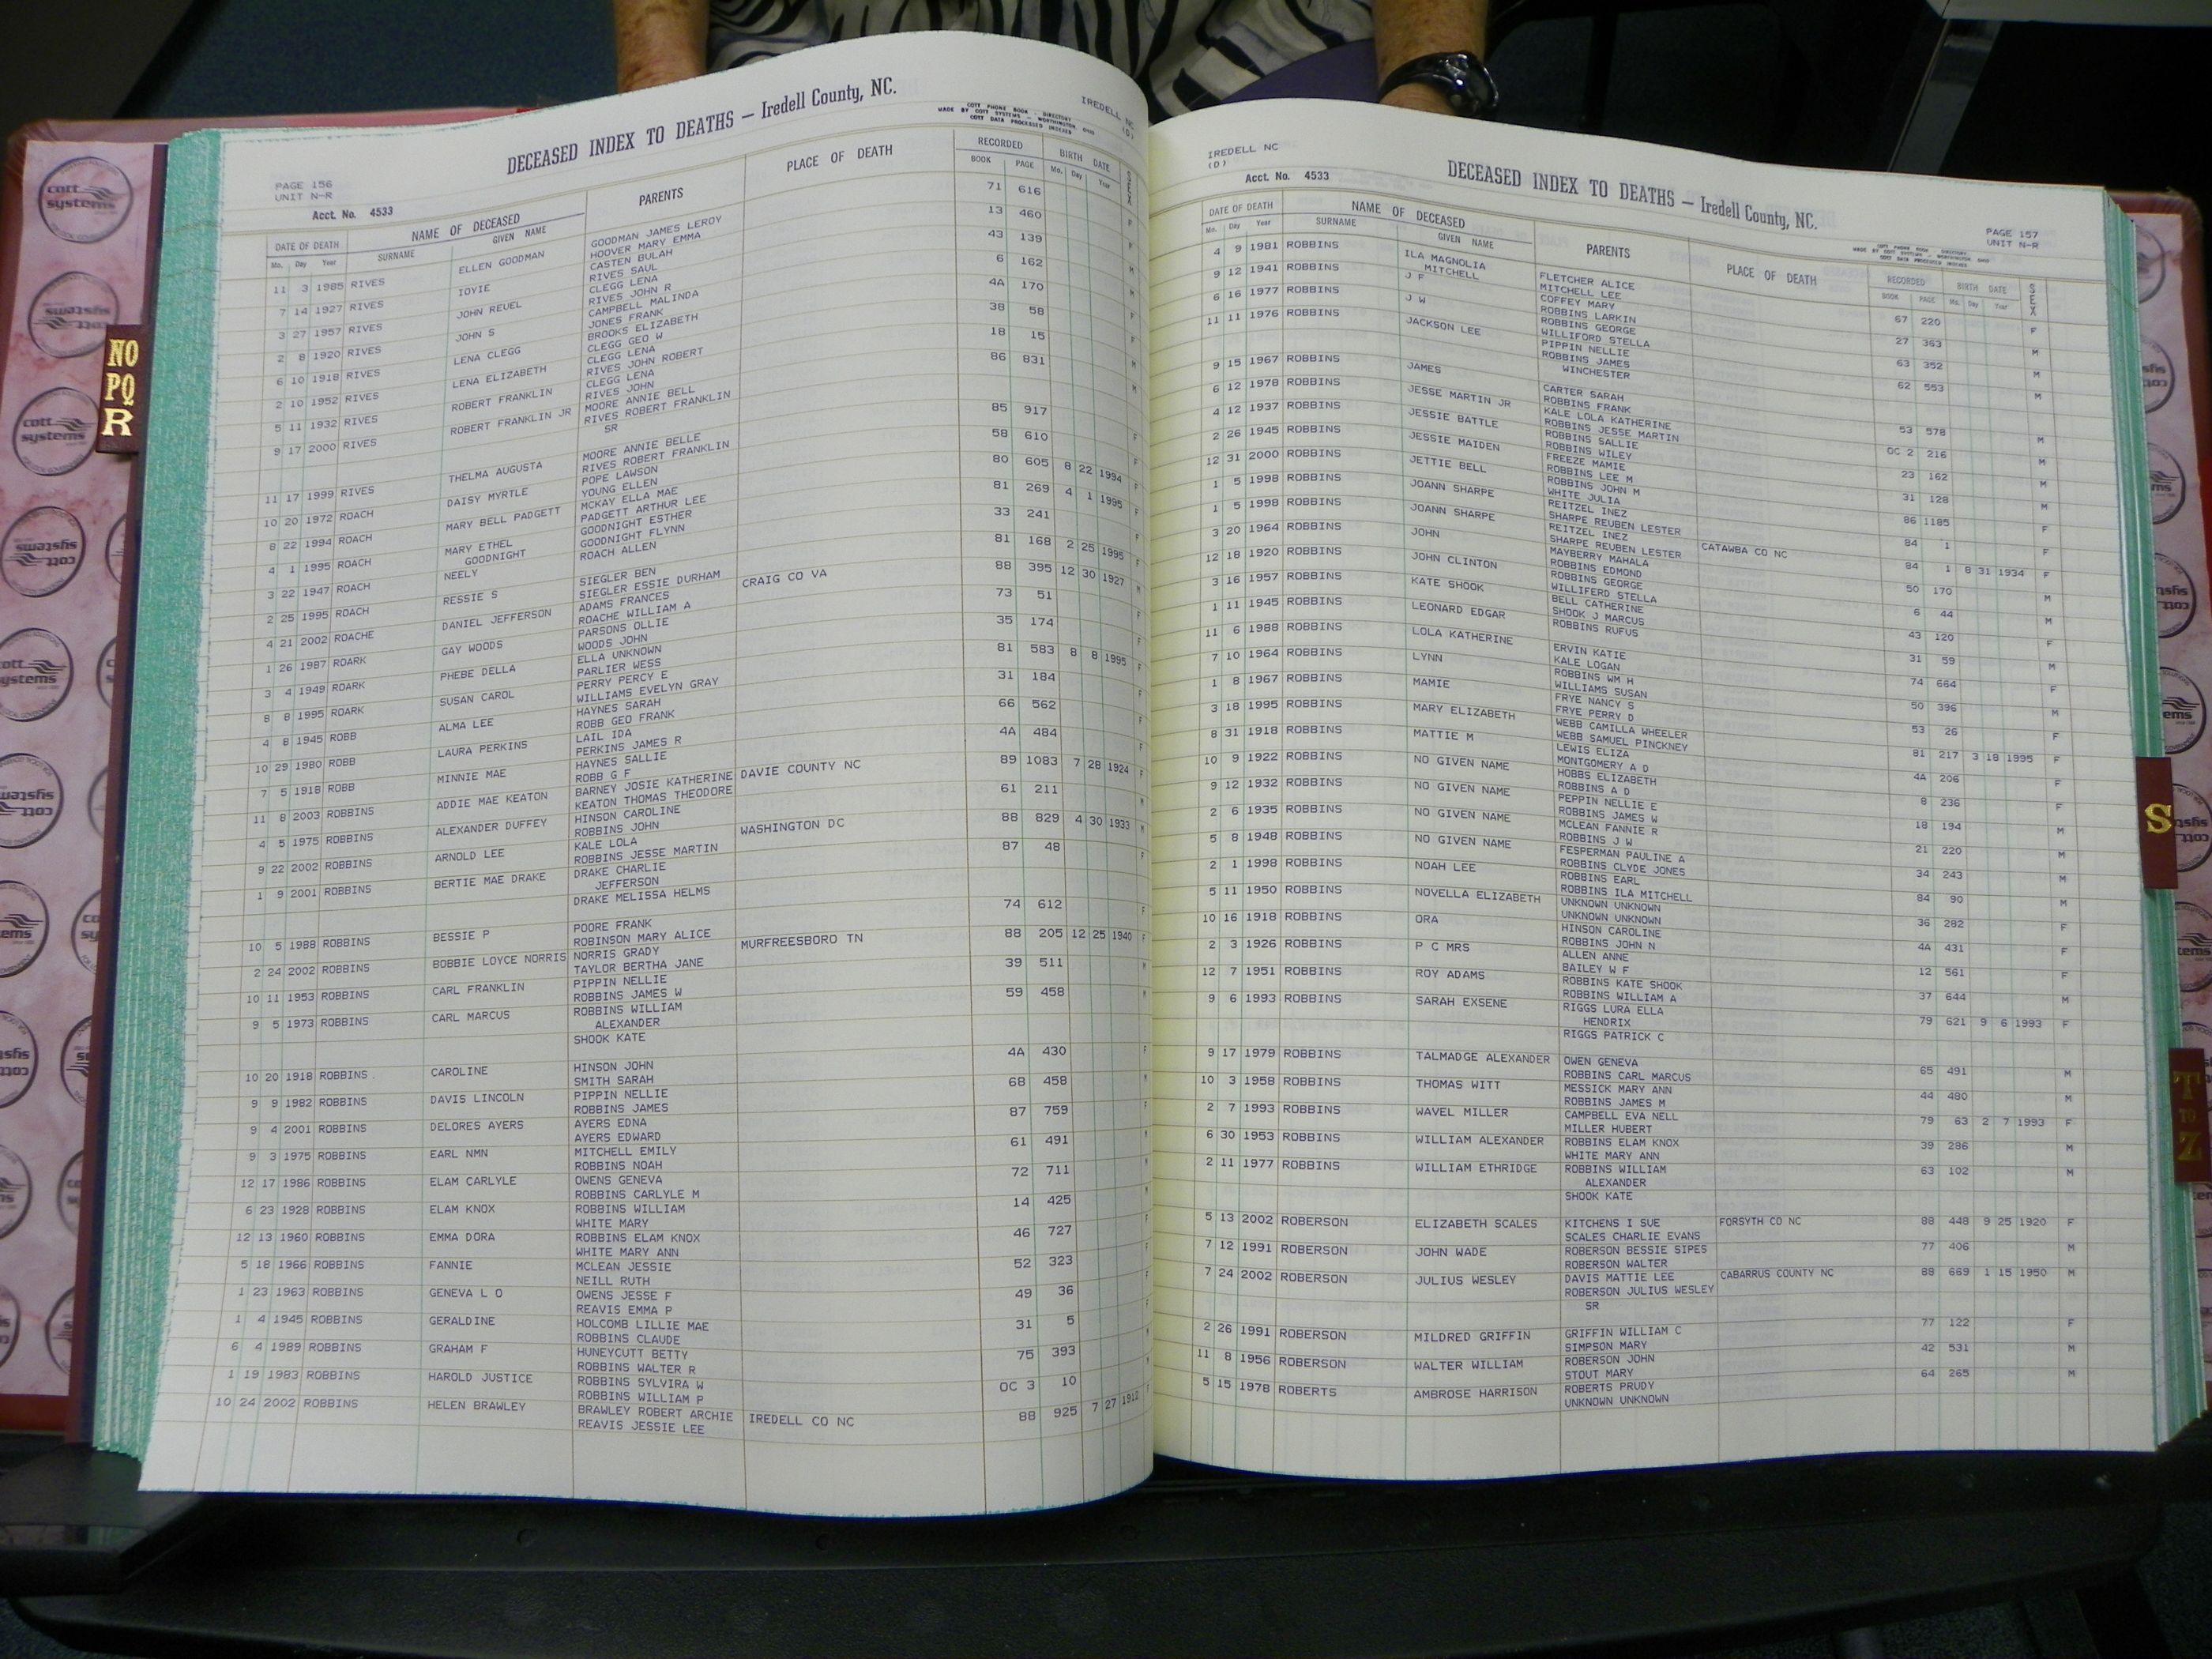 DECEASED INDEX TO DEATHS — Iredell County, NC.
COTT PHONE BOOK - DIRECTORY
MADE BY COTT SYSTEMS - WORTHINGTON OHIO
COTT DATA PROCESSED INDEXES
IREDELL NC
(D)
PAGE 156
UNIT N-R
Acct. No. 4533
DATE OF DEATH NAME OF DECEASED PARENTS PLACE OF DEATH RECORDED BIRTH DATE SEX
Mo. Day Year SURNAME GIVEN NAME BOOK PAGE Mo. Day Year
11 3 1985 RIVES ELLEN GOODMAN GOODMAN JAMES LEROY 71 616 F
HOOVER MARY EMMA
7 14 1927 RIVES IOYIE CASTEN BULAH 13 460 F
RIVES SAUL
3 27 1957 RIVES JOHN REUEL CLEGG LENA 43 139 M
RIVES JOHN R
2 8 1920 RIVES JOHN S CAMPBELL MALINDA 6 162 M
JONES FRANK
6 10 1918 RIVES LENA CLEGG BROOKS ELIZABETH 4A 170 F
CLEGG GEO W
2 10 1952 RIVES LENA ELIZABETH CLEGG LENA 38 58 F
RIVES JOHN ROBERT
5 11 1932 RIVES ROBERT FRANKLIN CLEGG LENA 18 15 M
RIVES JOHN
9 17 2000 RIVES ROBERT FRANKLIN JR MOORE ANNIE BELL 86 831 M
RIVES ROBERT FRANKLIN
SR
11 17 1999 RIVES THELMA AUGUSTA MOORE ANNIE BELLE 85 917 F
RIVES ROBERT FRANKLIN
10 20 1972 ROACH DAISY MYRTLE POPE LAWSON 58 610 F
YOUNG ELLEN
8 22 1994 ROACH MARY BELL PADGETT MCKAY ELLA MAE 80 605 8 22 1994 F
PADGETT ARTHUR LEE
4 1 1995 ROACH MARY ETHEL GOODNIGHT ESTHER 81 269 4 1 1995 F
GOODNIGHT GOODNIGHT FLYNN
3 22 1947 ROACH NEELY ROACH ALLEN 33 241
2 25 1995 ROACH RESSIE S SIEGLER BEN 81 168 2 25 1995 F
SIEGLER ESSIE DURHAM
4 21 2002 ROACHE DANIEL JEFFERSON ADAMS FRANCES CRAIG CO VA 88 395 12 30 1927 M
ROACHE WILLIAM A
1 26 1987 ROARK GAY WOODS PARSONS OLLIE 73 51 F
WOODS JOHN
3 4 1949 ROARK PHEBE DELLA ELLA UNKNOWN 35 174 F
PARLIER WESS
8 8 1995 ROARK SUSAN CAROL PERRY PERCY E 81 583 8 8 1995 F
WILLIAMS EVELYN GRAY
4 8 1945 ROBB ALMA LEE HAYNES SARAH 31 184 F
ROBB GEO FRANK
10 29 1980 ROBB LAURA PERKINS LAIL IDA 66 562 F
PERKINS JAMES R
7 5 1918 ROBB MINNIE MAE HAYNES SALLIE 4A 484 F
ROBB G F
11 8 2003 ROBBINS ADDIE MAE KEATON BARNEY JOSIE KATHERINE DAVIE COUNTY NC 89 1083 7 28 1924 F
KEATON THOMAS THEODORE
4 5 1975 ROBBINS ALEXANDER DUFFEY HINSON CAROLINE 61 211 M
ROBBINS JOHN
9 22 2002 ROBBINS ARNOLD LEE KALE LOLA WASHINGTON DC 88 829 4 30 1933 M
ROBBINS JESSE MARTIN
1 9 2001 ROBBINS BERTIE MAE DRAKE DRAKE CHARLIE 87 48 F
JEFFERSON
DRAKE MELISSA HELMS
10 5 1988 ROBBINS BESSIE P POORE FRANK 74 612 F
ROBINSON MARY ALICE
2 24 2002 ROBBINS BOBBIE LOYCE NORRIS NORRIS GRADY MURFREESBORO TN 88 205 12 25 1940 F
TAYLOR BERTHA JANE
10 11 1953 ROBBINS CARL FRANKLIN PIPPIN NELLIE 39 511 M
ROBBINS JAMES W
9 5 1973 ROBBINS CARL MARCUS ROBBINS WILLIAM 59 458 M
ALEXANDER
SHOOK KATE
10 20 1918 ROBBINS CAROLINE HINSON JOHN 4A 430 F
SMITH SARAH
9 9 1982 ROBBINS DAVIS LINCOLN PIPPIN NELLIE 68 458 M
ROBBINS JAMES
9 4 2001 ROBBINS DELORES AYERS AYERS EDNA 87 759 F
AYERS EDWARD
9 3 1975 ROBBINS EARL NMN MITCHELL EMILY 61 491 M
ROBBINS NOAH
12 17 1986 ROBBINS ELAM CARLYLE OWENS GENEVA 72 711 M
ROBBINS CARLYLE M
6 23 1928 ROBBINS ELAM KNOX ROBBINS WILLIAM 14 425 M
WHITE MARY
12 13 1960 ROBBINS EMMA DORA ROBBINS ELAM KNOX 46 727 F
WHITE MARY ANN
5 18 1966 ROBBINS FANNIE MCLEAN JESSIE 52 323 F
NEILL RUTH
1 23 1963 ROBBINS GENEVA L O OWENS JESSE F 49 36 F
REAVIS EMMA P
1 4 1945 ROBBINS GERALDINE HOLCOMB LILLIE MAE 31 5 F
ROBBINS CLAUDE
6 4 1989 ROBBINS GRAHAM F HUNEYCUTT BETTY 75 393 M
ROBBINS WALTER R
1 19 1983 ROBBINS HAROLD JUSTICE ROBBINS SYLVIRA W OC 3 10 M
ROBBINS WILLIAM P
10 24 2002 ROBBINS HELEN BRAWLEY BRAWLEY ROBERT ARCHIE IREDELL CO NC 88 925 7 27 1912 F
REAVIS JESSIE LEE
IREDELL NC
(D)
Acct. No. 4533
DECEASED INDEX TO DEATHS — Iredell County, NC.
PAGE 157
UNIT N-R
COTT PHONE BOOK - DIRECTORY
MADE BY COTT SYSTEMS - WORTHINGTON OHIO
COTT DATA PROCESSED INDEXES
DATE OF DEATH NAME OF DECEASED PARENTS PLACE OF DEATH RECORDED BIRTH DATE SEX
Mo. Day Year SURNAME GIVEN NAME BOOK PAGE Mo. Day Year
4 9 1981 ROBBINS ILA MAGNOLIA FLETCHER ALICE 67 220 F
MITCHELL MITCHELL LEE
9 12 1941 ROBBINS J F COFFEY MARY 27 363 M
ROBBINS LARKIN
6 16 1977 ROBBINS J W ROBBINS GEORGE 63 352 M
WILLIFORD STELLA
11 11 1976 ROBBINS JACKSON LEE PIPPIN NELLIE 62 553 M
ROBBINS JAMES
WINCHESTER
9 15 1967 ROBBINS JAMES CARTER SARAH 53 578 M
ROBBINS FRANK
6 12 1978 ROBBINS JESSE MARTIN JR KALE LOLA KATHERINE OC 2 216 M
ROBBINS JESSE MARTIN
4 12 1937 ROBBINS JESSIE BATTLE ROBBINS SALLIE 23 162 M
ROBBINS WILEY
2 26 1945 ROBBINS JESSIE MAIDEN FREEZE MAMIE 31 128 M
ROBBINS LEE M
12 31 2000 ROBBINS JETTIE BELL ROBBINS JOHN M 86 1185 F
WHITE JULIA
1 5 1998 ROBBINS JOANN SHARPE REITZEL INEZ 84 1 F
SHARPE REUBEN LESTER
1 5 1998 ROBBINS JOANN SHARPE REITZEL INEZ CATAWBA CO NC 84 1 8 31 1934 F
SHARPE REUBEN LESTER
3 20 1964 ROBBINS JOHN MAYBERRY MAHALA 50 170 M
ROBBINS EDMOND
12 18 1920 ROBBINS JOHN CLINTON ROBBINS GEORGE 6 44 M
WILLIFERD STELLA
3 16 1957 ROBBINS KATE SHOOK BELL CATHERINE 43 120 F
SHOOK J MARCUS
1 11 1945 ROBBINS LEONARD EDGAR ROBBINS RUFUS 31 59 M
11 6 1988 ROBBINS LOLA KATHERINE ERVIN KATIE 74 664 F
KALE LOGAN
7 10 1964 ROBBINS LYNN ROBBINS WM H 50 396 M
WILLIAMS SUSAN
1 8 1967 ROBBINS MAMIE FRYE NANCY S 53 26 F
FRYE PERRY D
3 18 1995 ROBBINS MARY ELIZABETH WEBB CAMILLA WHEELER 81 217 3 18 1995 F
WEBB SAMUEL PINCKNEY
8 31 1918 ROBBINS MATTIE M LEWIS ELIZA 4A 206 F
MONTGOMERY A D
10 9 1922 ROBBINS NO GIVEN NAME HOBBS ELIZABETH 8 236 F
ROBBINS A D
9 12 1932 ROBBINS NO GIVEN NAME PEPPIN NELLIE E 18 194 M
ROBBINS JAMES W
2 6 1935 ROBBINS NO GIVEN NAME MCLEAN FANNIE R 21 220 M
ROBBINS J W
5 8 1948 ROBBINS NO GIVEN NAME FESPERMAN PAULINE A 34 243 M
ROBBINS CLYDE JONES
2 1 1998 ROBBINS NOAH LEE ROBBINS EARL 84 90 M
ROBBINS ILA MITCHELL
5 11 1950 ROBBINS NOVELLA ELIZABETH UNKNOWN UNKNOWN 36 282 F
UNKNOWN UNKNOWN
10 16 1918 ROBBINS ORA HINSON CAROLINE 4A 431 F
ROBBINS JOHN N
2 3 1926 ROBBINS P C MRS ALLEN ANNE 12 561 F
BAILEY W F
12 7 1951 ROBBINS ROY ADAMS ROBBINS KATE SHOOK 37 644 M
ROBBINS WILLIAM A
9 6 1993 ROBBINS SARAH EXSENE RIGGS LURA ELLA 79 621 9 6 1993 F
HENDRIX
RIGGS PATRICK C
9 17 1979 ROBBINS TALMADGE ALEXANDER OWEN GENEVA 65 491 M
ROBBINS CARL MARCUS
10 3 1958 ROBBINS THOMAS WITT MESSICK MARY ANN 44 480 M
ROBBINS JAMES M
2 7 1993 ROBBINS WAVEL MILLER CAMPBELL EVA NELL 79 63 2 7 1993 F
MILLER HUBERT
6 30 1953 ROBBINS WILLIAM ALEXANDER ROBBINS ELAM KNOX 39 286 M
WHITE MARY ANN
2 11 1977 ROBBINS WILLIAM ETHRIDGE ROBBINS WILLIAM 63 102 M
ALEXANDER
SHOOK KATE
5 13 2002 ROBERSON ELIZABETH SCALES KITCHENS I SUE FORSYTH CO NC 88 448 9 25 1920 F
SCALES CHARLIE EVANS
7 12 1991 ROBERSON JOHN WADE ROBERSON BESSIE SIPES 77 406 M
ROBERSON WALTER
7 24 2002 ROBERSON JULIUS WESLEY DAVIS MATTIE LEE CABARRUS COUNTY NC 88 669 1 15 1950 M
ROBERSON JULIUS WESLEY
SR
2 26 1991 ROBERSON MILDRED GRIFFIN GRIFFIN WILLIAM C 77 122 F
SIMPSON MARY
11 8 1956 ROBERSON WALTER WILLIAM ROBERSON JOHN 42 531 M
STOUT MARY
5 15 1978 ROBERTS AMBROSE HARRISON ROBERTS PRUDY 64 265 M
UNKNOWN UNKNOWN
NO
PQ
R
S
T
TO
Z
cott
systems